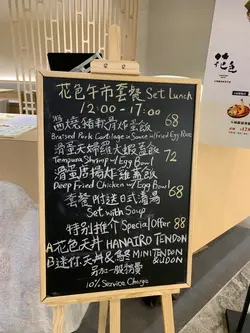 花色午市套餐 Set Lunch
12:00 - 17:00
醬燒豬軟骨炸蛋飯 68
Braised Pork Cartilage in Sauce w/Fried Egg Rice
滑蛋天婦羅大蝦蓋飯
Tempura Shrimp w/ Egg Bowl 72
滑蛋唐揚炸雞蓋飯
Deep Fried Chicken w/ Egg Bowl 68
套餐附送日式湯
Set with Soup
特別推介 Special Offer 88
A花色天丼 HANAIRO TENDON
B迷你天丼&烏冬 MINI TENDON
&UDON
另加一服務費
10% Service Charge
花